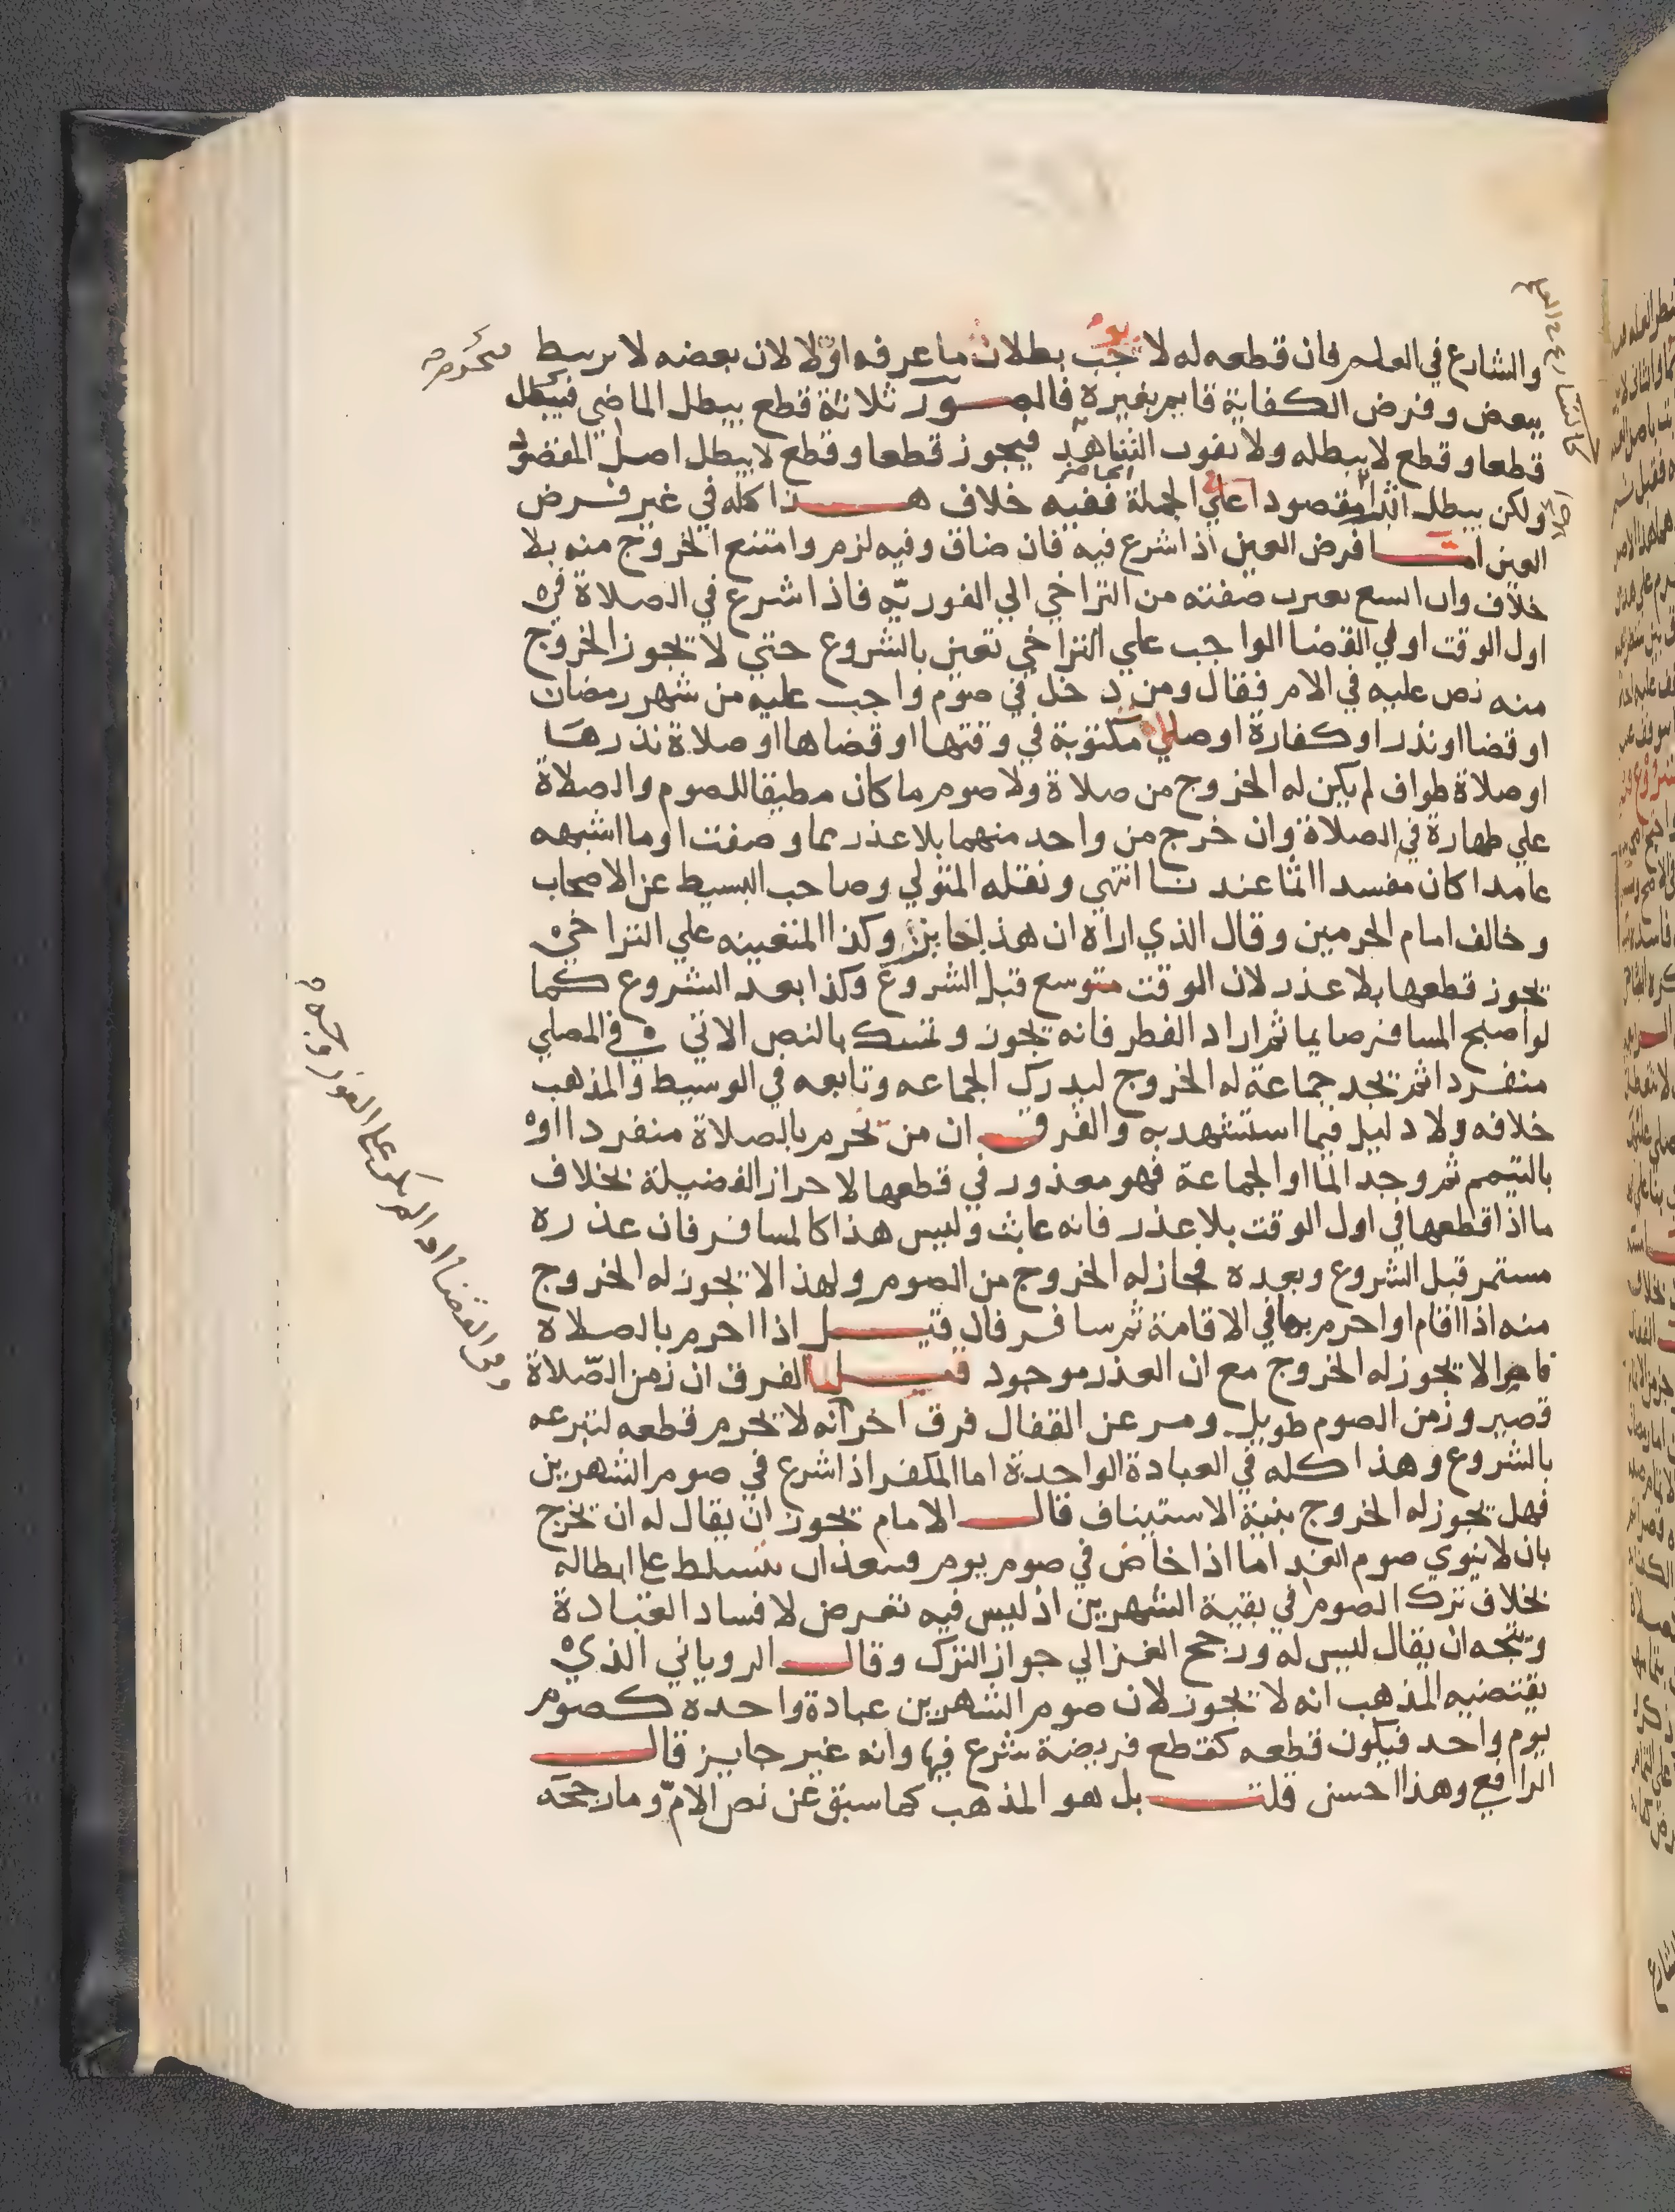 والشارع في العلم فان قطعه له لا يوجب بطلان ما عرفه اولا لان بعضه لا يرتبط
ببعض وفرض الكفاية قايم بغيره فالصور ثلاثة قطع يبطل الماضي فيبطل
قطعا وقطع لا يبطله ولا يفوت الشاهد فيجوز قطعا وقطع لا يبطل اصل المقصود
ولكن يبطل امرا مقصودا علي الجملة ففيه خلاف هذا كله في غير فرض
العين اما فرض العين اذا شرع فيه فان ضاق وفيه لزم وامتنع الخروج منه بلا
خلاف وان اتسع تغيرت صفته من التراخي الي الفورية فاذا شرع في الصلاة في
اول الوقت او في القضا الواجب علي التراخي تعين بالشروع حتي لا يجوز الخروج
منه نص عليه في الام فقال ومن دخل في صوم واجب عليه من شهر رمضان
او قضا او نذر او كفارة او صلي مكتوبة في وقتها او قضاها او صلاة نذرها
او صلاة طواف لم يكن له الخروج من صلاة ولا صوم ما كان مطيقا للصوم والصلاة
علي طهارة في الصلاة وان خرج من واحد منهما بلا عذر مما وصفت او ما اشبهه
عامدا كان مفسدا اثما عندنا انتهي ونقله المتولي وصاحب البسيط عن الاصحاب
وخالف امام الحرمين وقال الذي اراه ان هذا جايز وكذا المتعينه علي التراخي
يجوز قطعها بلا عذر لان الوقت متوسع قبل الشروع وكذا بعد الشروع كما
لو اصبح المسافر صايما ثم اراد الفطر فانه يجوز وتمسك بالنص الاتي في المصلي
منفردا ثم يجد جماعة له الخروج ليدرك الجماعه وتابعه في الوسيط والمذهب
خلافه ولا دليل فيما استشهد به والفرق ان من تحرم بالصلاة منفردا او
بالتيمم ثم وجد الما او الجماعة فهو معذور في قطعها لاحراز الفضيلة بخلاف
ما اذا قطعها في اول الوقت بلا عذر فانه عابث وليس هذا كالمسافر فان عذره
مستمر قبل الشروع وبعده فجاز له الخروج من الصوم ولهذا لا يجوز له الخروج
منه اذا اقام او احرم بها في الاقامة ثم سافر فان قيل اذا احرم بالصلاة
قاصرا لا يجوز له الخروج مع ان العذر موجود قيل الفرق ان زمن الصلاة
قصير وزمن الصوم طويل ومر عن القفال فرق اخر انه لا يحرم قطعه لتبرعه
بالشروع وهذا كله في العبادة الواحدة اما المكفر اذا شرع في صوم الشهرين
فهل يجوز له الخروج بنية الاستيناف قال الامام يجوز ان يقال له ان يخرج
بان لا ينوي صوم الغد اما اذا خاض في صوم يوم فيبعد ان يتسلط علي ابطاله
بخلاف ترك الصوم في بقية الشهرين اذ ليس فيه تعرض لافساد العبادة
ويتجه ان يقال ليس له ورجح الغزالي جواز الترك وقال الروياني الذي
يقتضيه المذهب انه لا يجوز لان صوم الشهرين عبادة واحده كصوم
يوم واحد فيكون قطعه كقطع فريضة شرع فيها وانه غير جايز قال
الرافعي وهذا احسن قلت بل هو المذهب كما سبق عن نص الام وما رجحه
الحاضر
ومن القضا اذا لم يكن علي الفور وجه